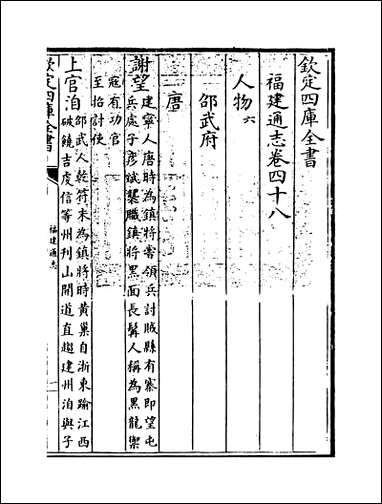 欽定四庫全書
福建通志卷四十八
人物六
邵武府
唐
謝望建寧人唐時為鎮將嘗領兵討賊縣有寨即望屯
兵處子彦斌襲職鎮將黑面長髯人稱為黑龍禦
寇有功官
至招討使
上官洎邵武人乾符末為鎮將時黃巢自浙東踰江西
破饒吉虔信等州刊山開道直趨建州洎與子
欽定四庫全書
福建通志